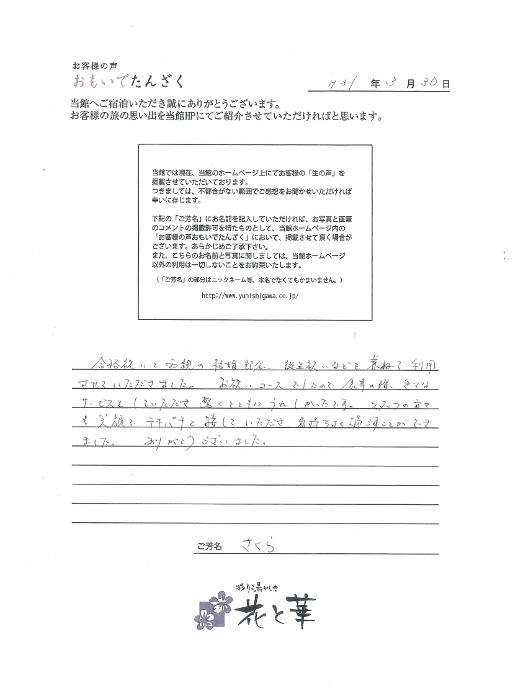 お客様の声
おもいでたんざく
H31 年 3 月 30 日
当館へご宿泊いただき誠にありがとうございます。
お客様の旅の思い出を当館HPにてご紹介させていただければと思います。
当館では現在、当館のホームページ上にてお客様の「生の声」を
掲載させていただいております。
つきましては、不都合がない範囲でご感想をお聞かせいただければ
幸いに存じます。
下記の「ご芳名」にお名前を記入していただければ、お写真と直筆
のコメントの掲載許可を得たものとして、当館ホームページ内の
「お客様の声おもいでたんざく」において、掲載させて頂く場合が
ございます。あらかじめご了承下さい。
また、こちらのお名前と写真に関しましては、当館ホームページ
以外の利用は一切しないことをお約束いたします。
(「ご芳名」の部分はニックネーム等、本名でなくてもかまいません。)
http://www.yunishigawa.co.jp/
合格祝いと両親の結婚記念、誕生祝いなどを兼ねて利用
させていただきました。 お祝いコースでしたので食事の際、色々な
サービスをしていただき驚くとともにうれしかったです。スタッフの方々
も笑顔でテキパキと接していただき気持ちよく過ごすことができ
ました。 ありがとうございました。
ご芳名 さくら
彩り湯かしき
花と華